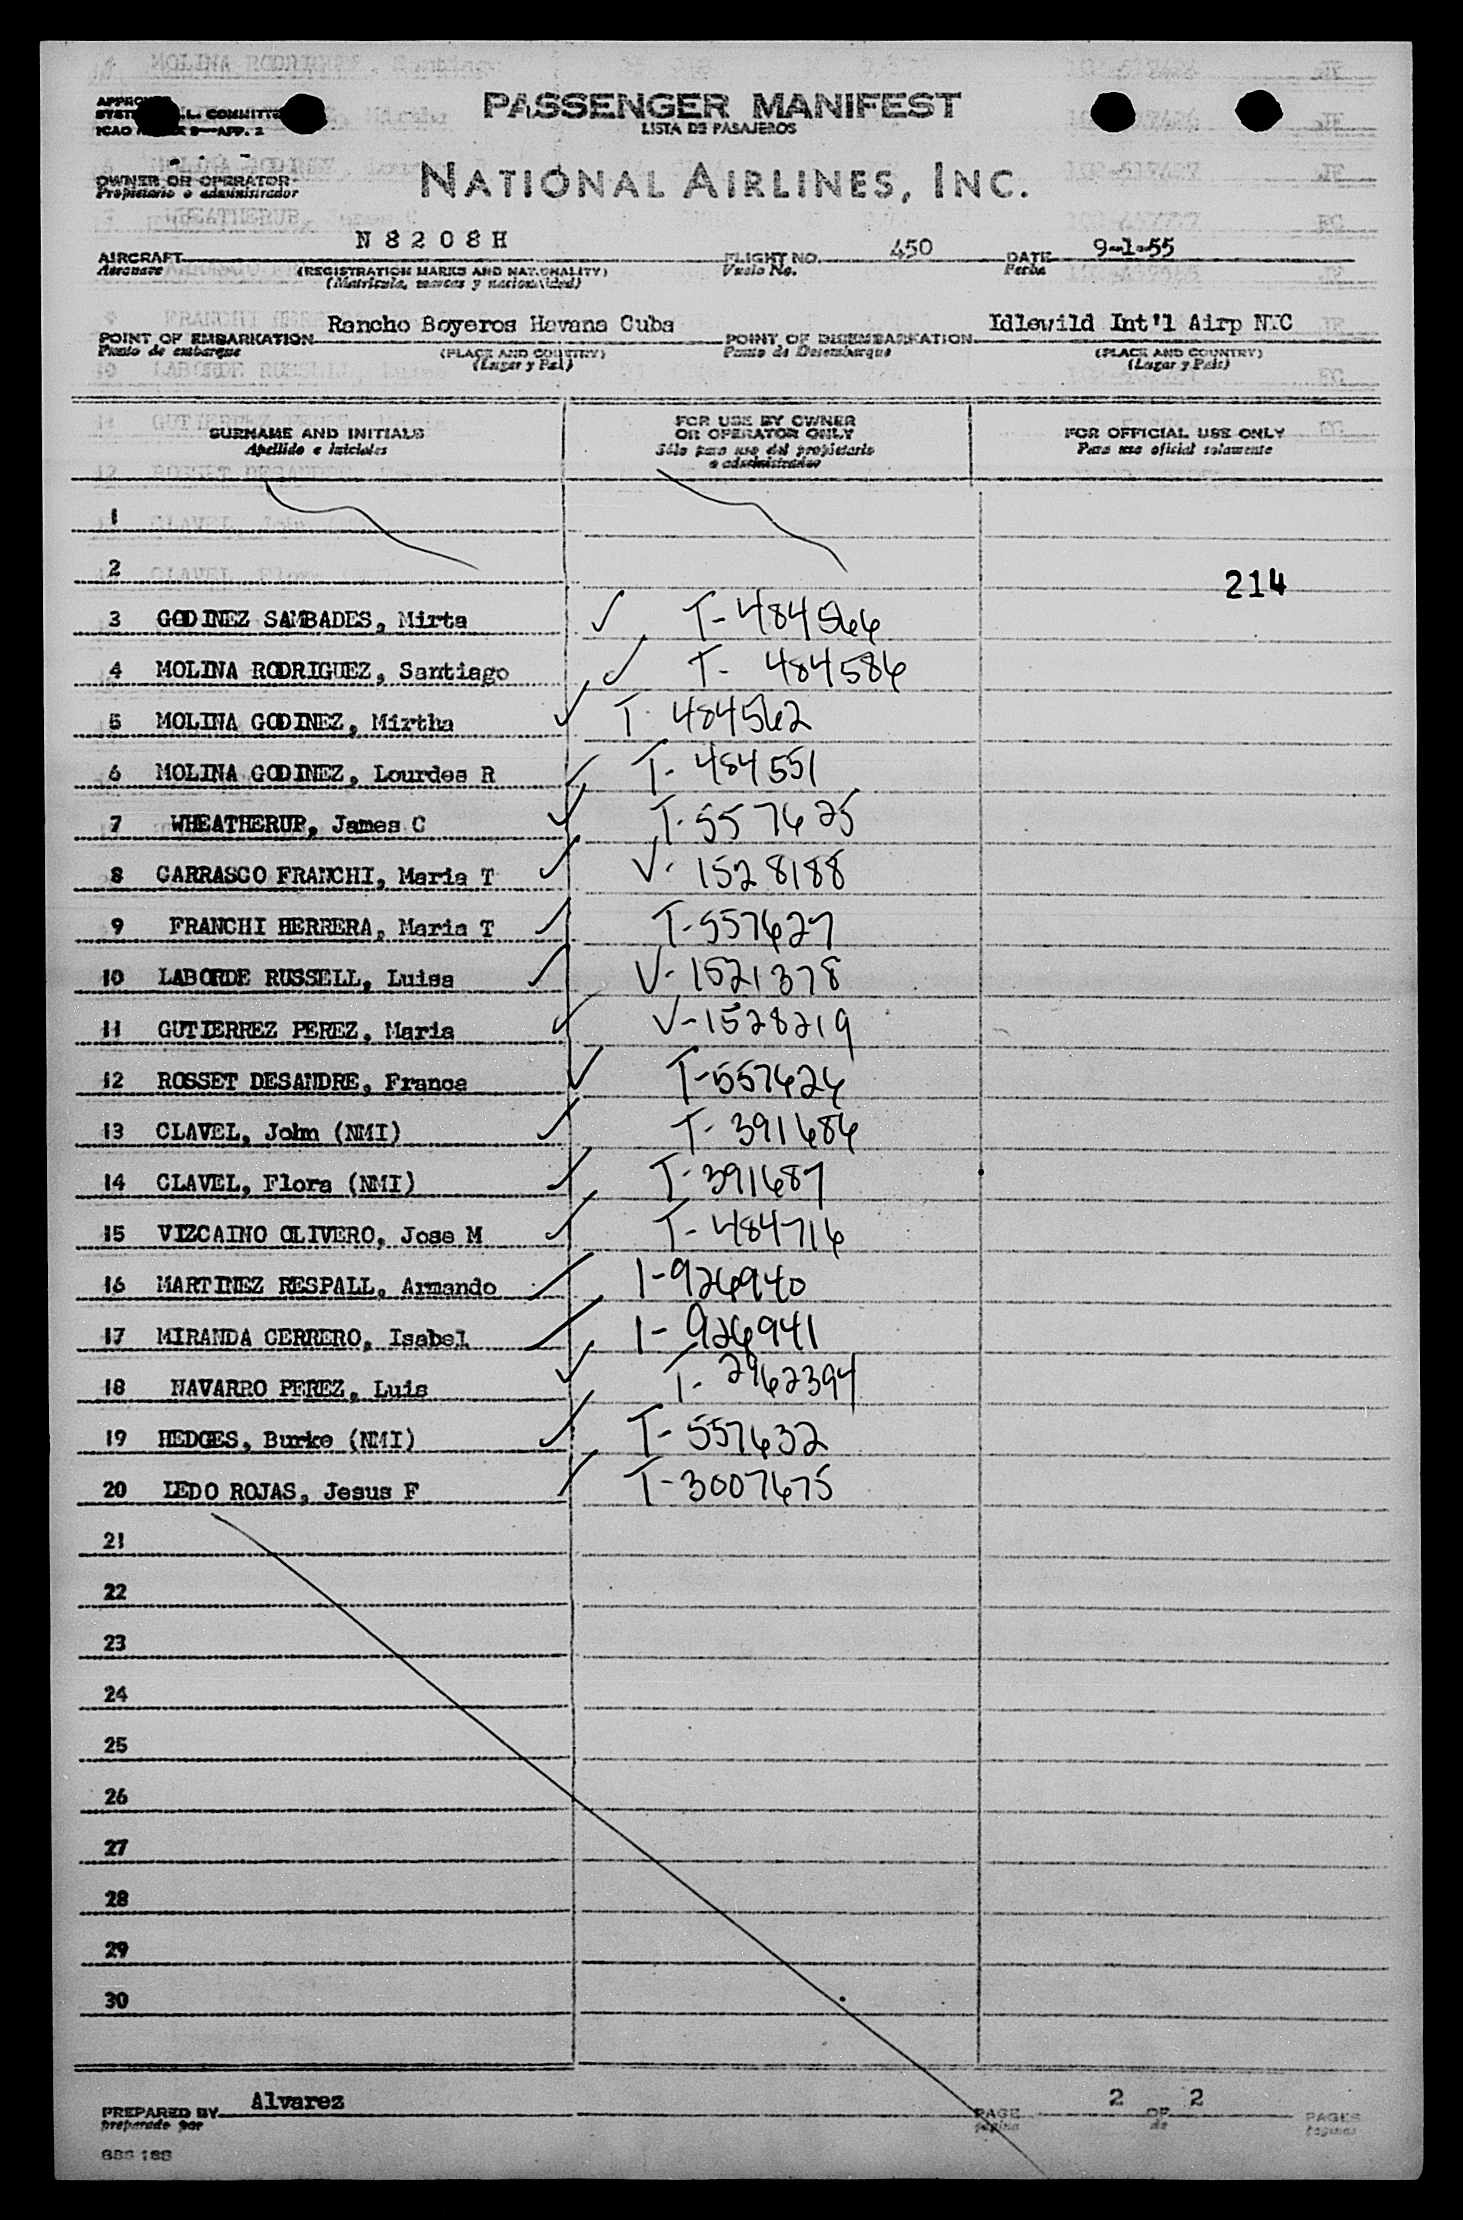 PASSENGER MANIFEST
LISTA DE PASAJEROS
OWNER OR OPERATOR
Propietario o administrador
NATIONAL AIRLINES, INC.
AIRCRAFT N 8 2 0 8 H FLIGHT NO. 450 DATE 9-1-55
Aeronave (REGISTRATION MARKS AND NATIONALITY) Vuelo No. Fecha
(Matricula, marcas y nacionalidad)
POINT OF EMBARKATION Rancho Boyeros Havana Cuba POINT OF DISEMBARKATION Idlewild Int'l Airp NYC
Punto de embarque (PLACE AND COUNTRY) Punto de Desembarque (PLACE AND COUNTRY)
(Lugar y País) (Lugar y País)
SURNAME AND INITIALS FOR USE BY OWNER OR OPERATOR ONLY FOR OFFICIAL USE ONLY
Apellido e iniciales Sólo para uso del propietario o administrador Para uso oficial solamente
1
2 214
3 GODINEZ SAMBADES, Mirta ✓ T-484566
4 MOLINA RODRIGUEZ, Santiago ✓ T-484586
5 MOLINA GODINEZ, Mirtha ✓ T-484562
6 MOLINA GODINEZ, Lourdes R ✓ T-484551
7 WHEATHERUP, James C ✓ T-557625
8 CARRASCO FRANCHI, Maria T ✓ V-1528188
9 FRANCHI HERRERA, Maria T ✓ T-557627
10 LABORDE RUSSELL, Luisa ✓ V-1521378
11 GUTIERREZ PEREZ, Maria ✓ V-1528219
12 ROSSET DESANDRE, France ✓ T-557626
13 CLAVEL, John (NMI) ✓ T-391686
14 CLAVEL, Flora (NMI) ✓ T-391687
15 VIZCAINO OLIVERO, Jose M ✓ T-484716
16 MARTINEZ RESPALL, Armando ✓ I-926940
17 MIRANDA CERRERO, Isabel ✓ I-926941
18 NAVARRO PEREZ, Luis ✓ T-2962394
19 HEDGES, Burke (NMI) ✓ T-557632
20 LEDO ROJAS, Jesus F ✓ T-3007675
21
22
23
24
25
26
27
28
29
30
PREPARED BY Alvarez PAGE 2 OF 2 PAGES
preparado por página de páginas